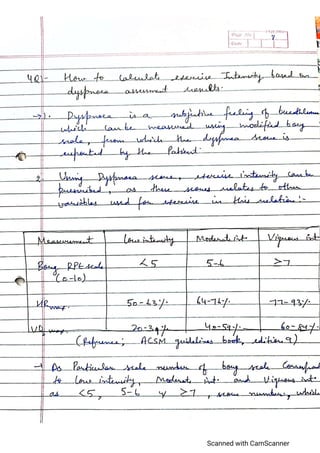 Page No. 7
Date
4Q)- How to Calculate exercise Intensity based on
dyspnoea assessment results.
→ 1. Dyspnoea is a subjective feeling of breathless
which can be measured using modified borg
scale, from which the dyspnoea score is
reported by the Patient.
2. Using Dyspnoea score, exercise intensity can be
prescribed, as these scores relates to other
variables used for exercise in this relation :-
Measurement Low intensity Moderate int. Vigrous int.
Borg RPE scale <5 5-6 ≥7
(0-10)
HRmax. 50-63%. 64-76%. 77-93%.
VO2 max. 20-39%. 40-59%. 60-84%.
(Refrence; ACSM guidelines book, edition 9)
→ As Particular scale number of borg scale
to low intensity, Moderate int. and Vigrous int.
as <5, 5-6 & ≥7, score number, which
Scanned with CamScanner